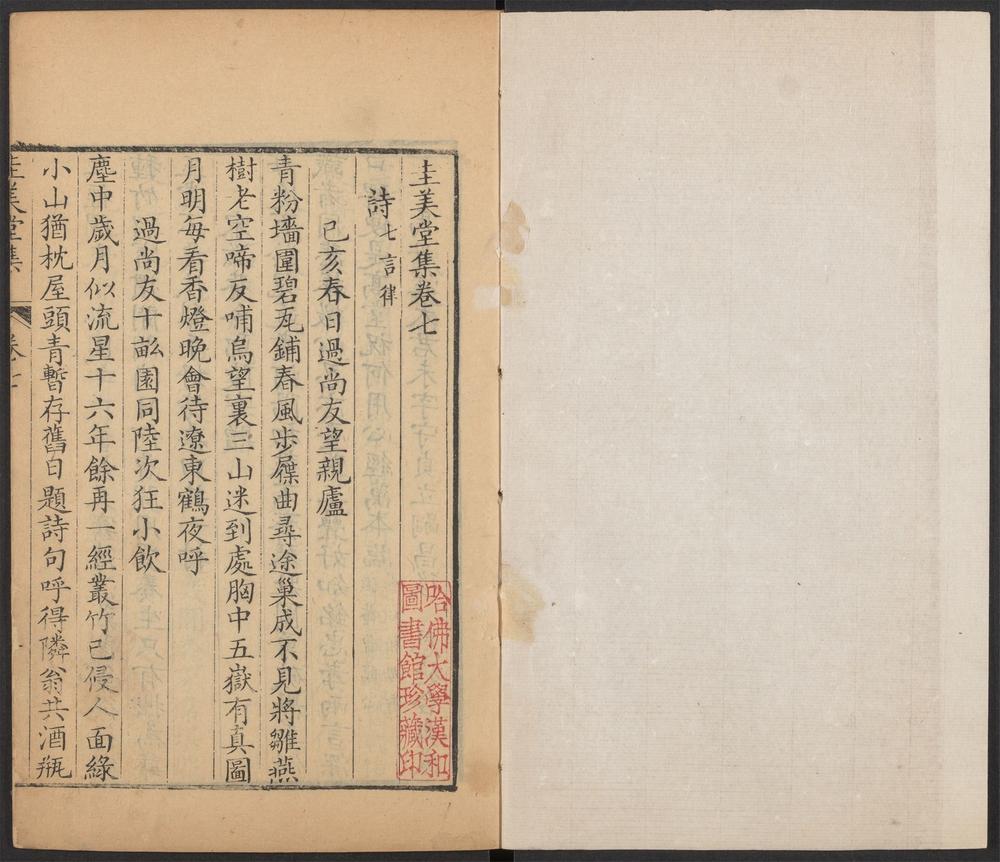 圭美堂集卷七
詩七言律
己亥春日過尚友望親廬
青粉墻圍碧瓦鋪春風步屧曲尋途巢成不見將雛燕
樹老空啼反哺烏望裏三山迷到處胸中五嶽有真圖
月明每看香燈晚會待遼東鶴夜呼
過尚友十畝園同陸次狂小飲
塵中歲月似流星十六年餘再一經叢竹已侵人面綠
小山猶枕屋頭青暫存舊日題詩句呼得隣翁共酒瓶
圭美堂集
卷七
哈佛大學漢和
圖書館珍藏印